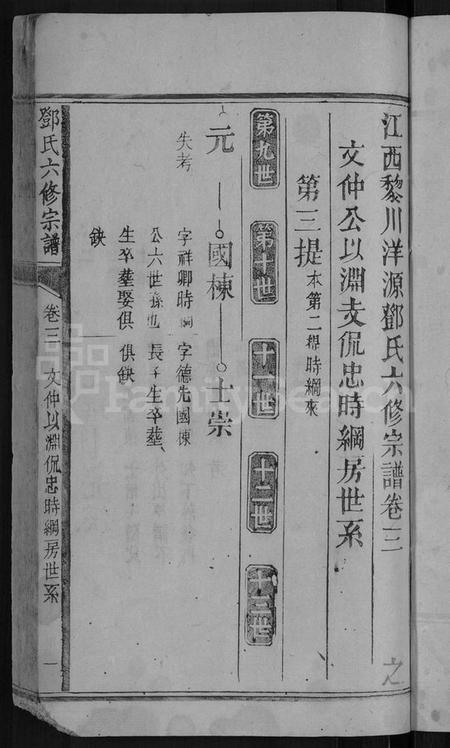 江西黎川洋源鄧氏六修宗譜卷三
之
文仲公以淵支侃忠時綱房世系
第三提 本第二提時綱來
第九世 第十世 十一世 十二世 十三世
元 國棟 士崇
失考
字祥卿時綱
公六世孫也
生卒塟娶俱
缺
字德先國棟
長子生卒塟
俱缺
鄧氏六修宗譜
卷三 文仲以淵侃忠時綱房世系 一
FamilySearch